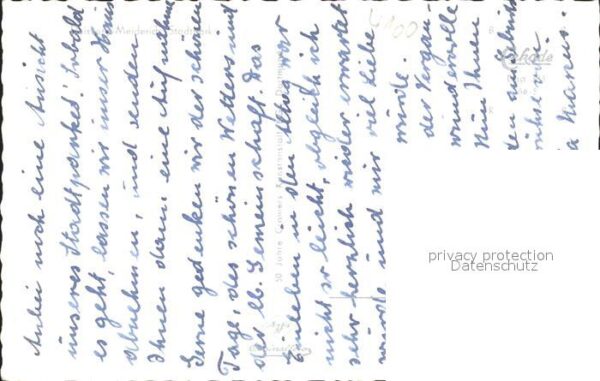 Anbei noch eine Ansicht
unseres Stadtparkes! Sobald
es geht, lassen wir unser Haus
abnehmen, und senden
Ihnen dann eine Aufnahme.
Gerne gedenken wir der schönen
Tage, des schönen Wetters und
der lb. Gemeinschaft. Das
Einleben in den Alltag war
nicht so leicht, obgleich ich
sehr herzlich wieder erwartet
wurde und mir viel Liebe
wurde.
der Vergan
wundervolle
Nun Ihnen
den
a Marcus.
4100
50 Jahre
privacy protection
Datenschutz